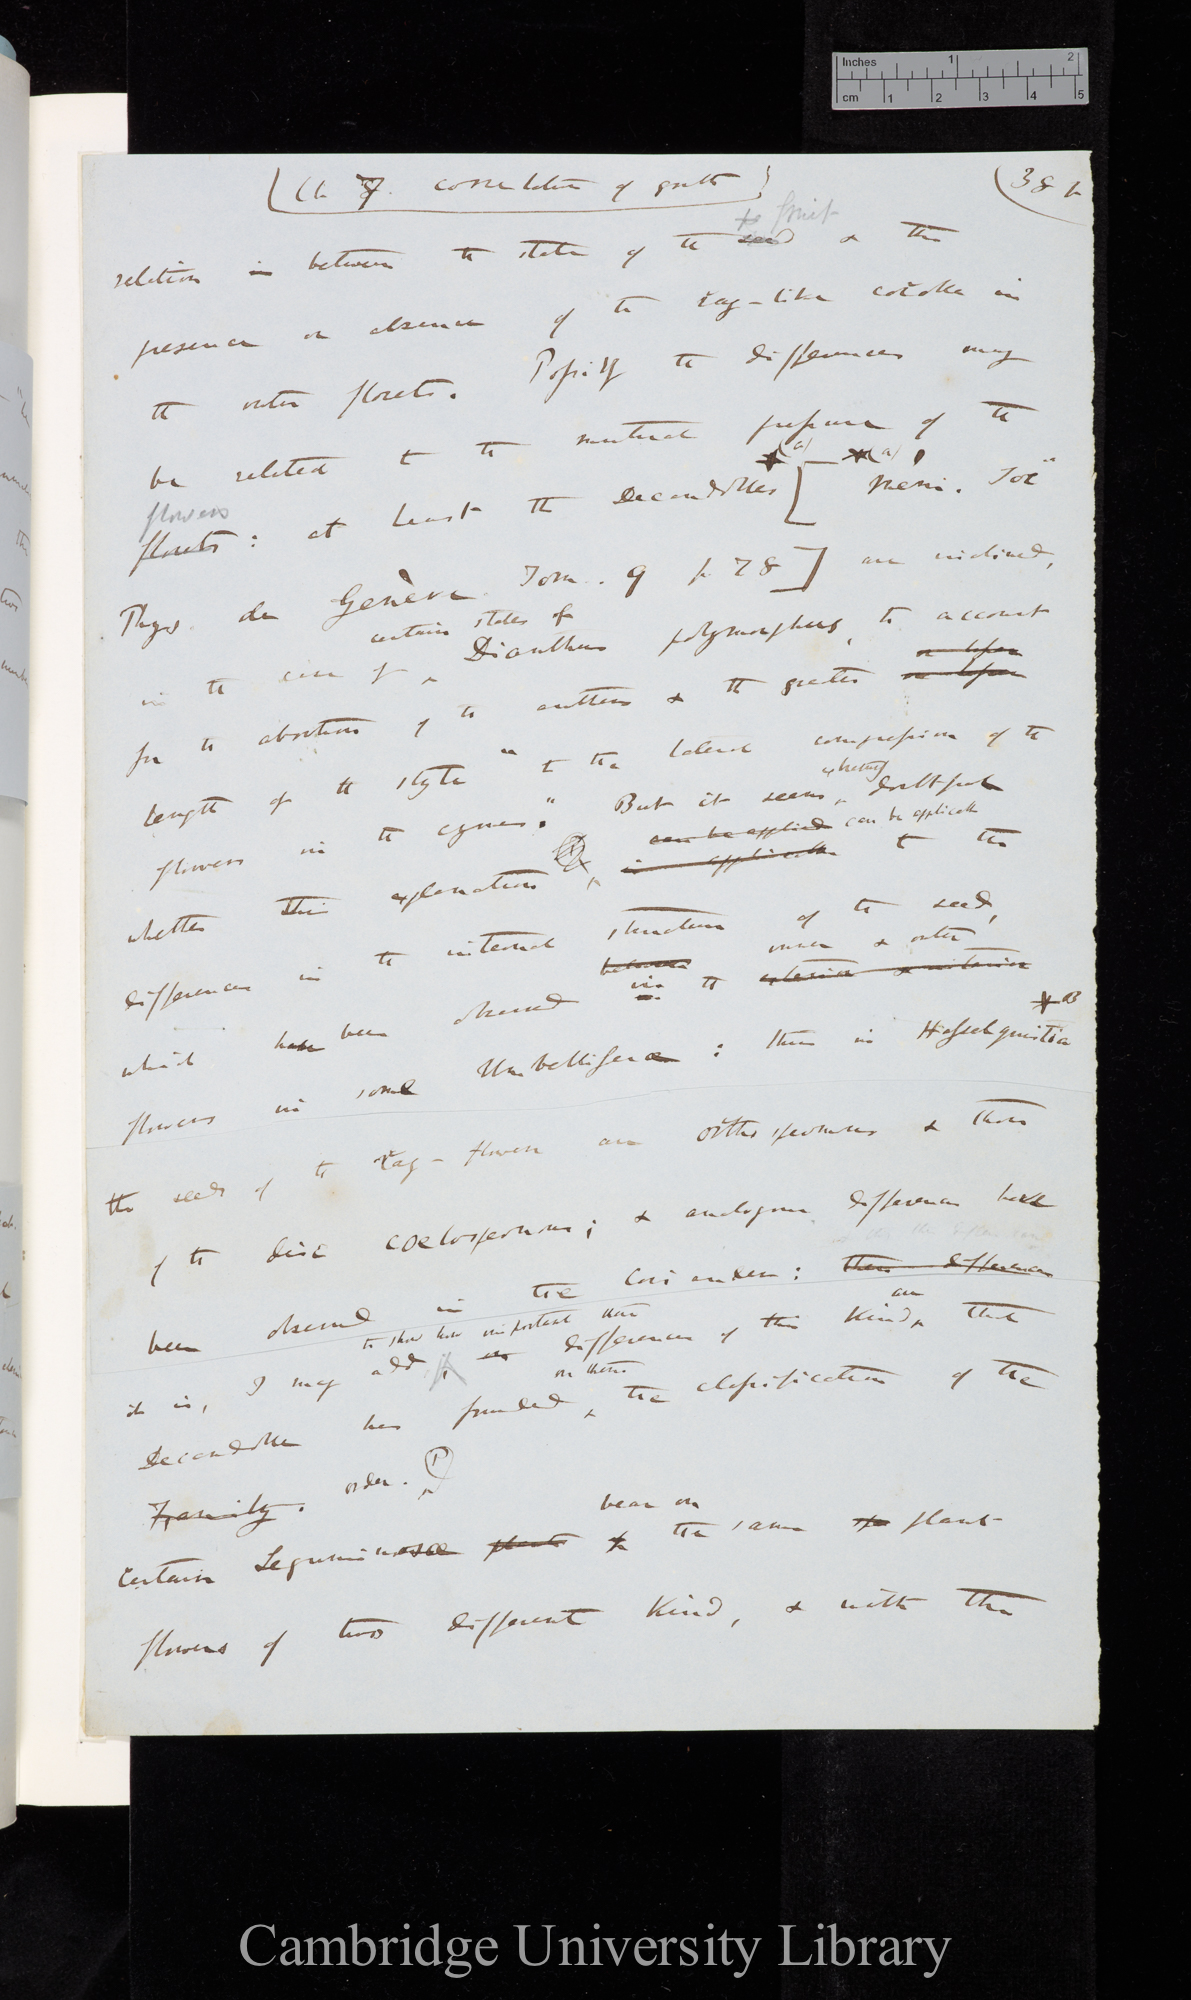 Inches 1 2
cm 1 2 3 4 5
(Ch 7. correlation of growth) (38
fruit
relation in between the state of the seed & the
presence or absence of the ray-like corolla in
the outer florets. Possibly the differences may
be related to the mutual pressure of the
flowers (a) (a)
florets: at least the Decandolles [ Mem. Soc
Phys. de Genève Tom. 9 p 78 ] are inclined,
certain states of
in the case of Dianthus polymorphus, to account
for the abortion of the anthers & the greater
length of the style " to the lateral compression of the
whether
flowers in the cymes." But it seems doubtful
can be applied can be applicable
whether this explanation is applicable to the
differences in the internal structure of the seed,
between inner & outer
which have been observed in the exterior & interior
flowers in some Umbelliferae: thus in Hasselquistia
the seeds of the ray-flowers are orthospermous & those
of the disc coelospermous; & analogous differences have
been observed in the Coriander: these differences
to show how important these are
it is, I may add, on differences of this kind, that
on them
Decandolle has founded the classification of the
Family. order.
bear on
Certain Leguminosae plants the same plant
flowers of two different kind, & with the
Cambridge University Library